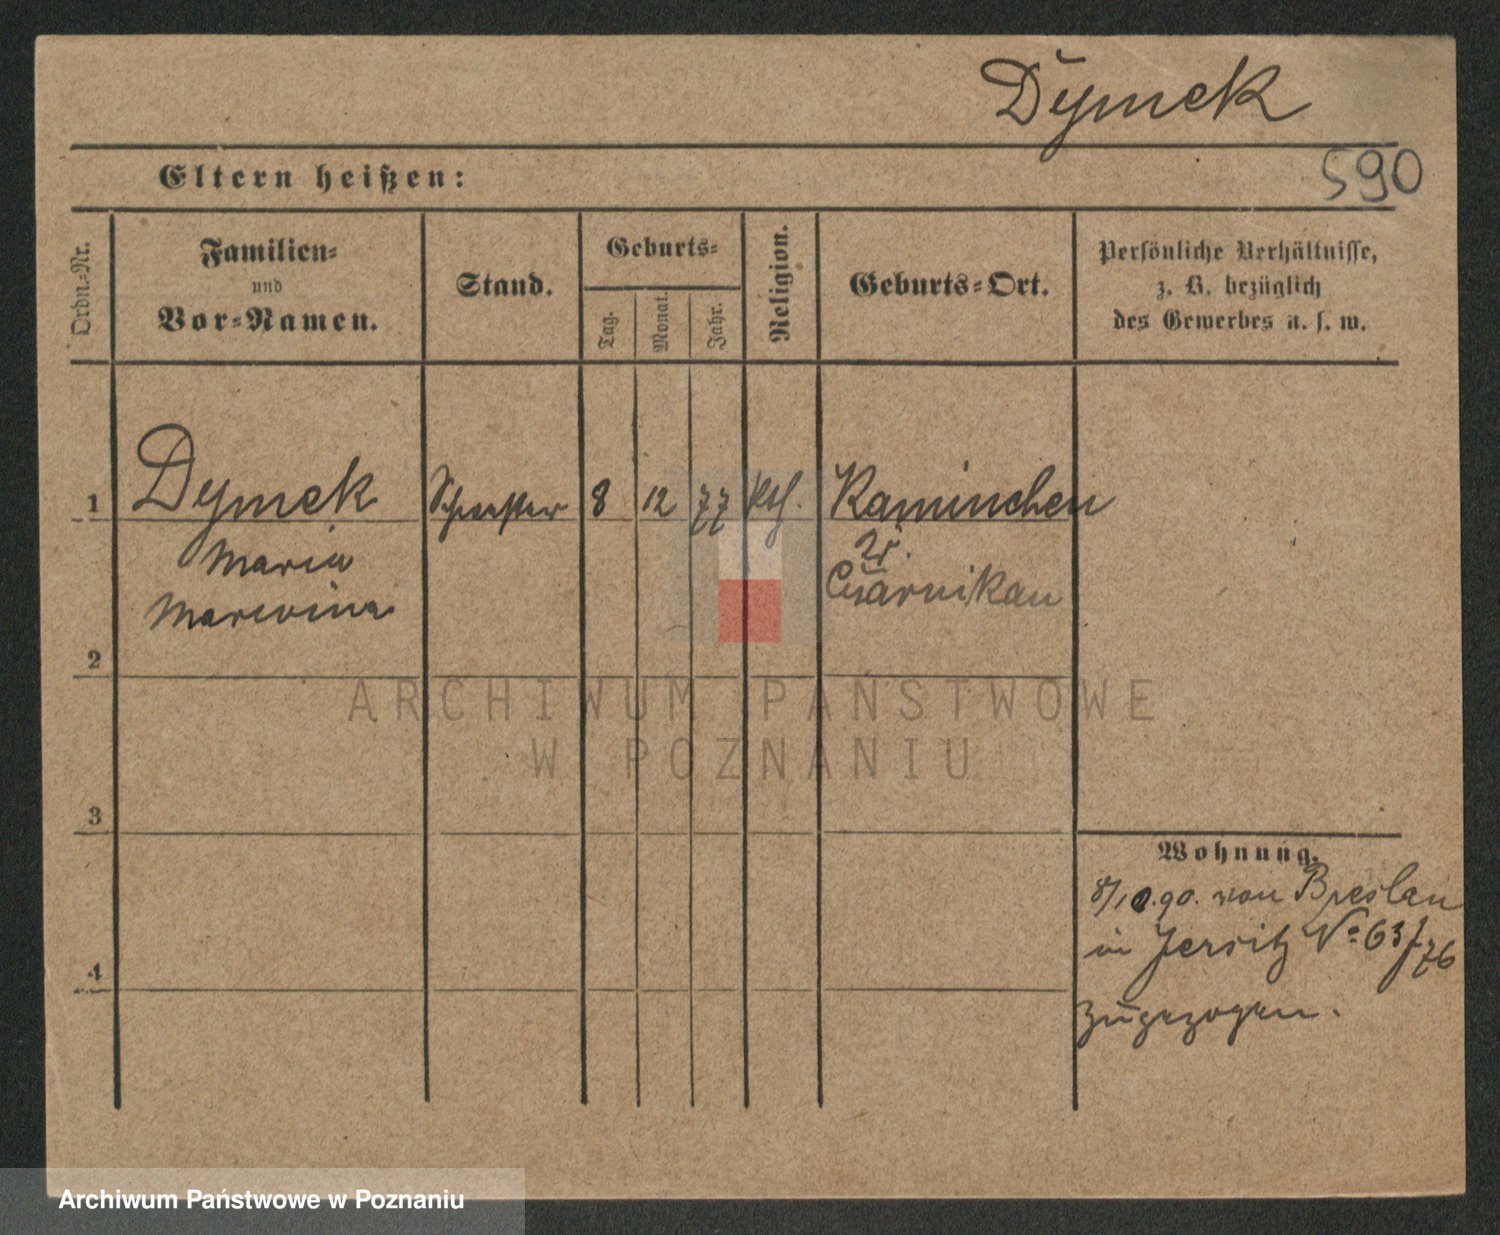 Dymek
590
Eltern heißen:
Ordn.-Nr.
Familien-
und
Vor-Namen.
Stand.
Geburts-
Tag.
Monat.
Jahr.
Religion.
Geburts-Ort.
Persönliche Verhältnisse,
z. B. bezüglich
des Gewerbes u. s. w.
1
Dymek
8
12
77
kth.
Kaminchen
Kr.
Maria
Czarnikau
2
ARCHIWUM PAŃSTWOWE
W POZNANIU
3
Wohnung.
90. von Breslau
in Jersitz No 63
4
zugezogen.
Archiwum Państwowe w Poznaniu